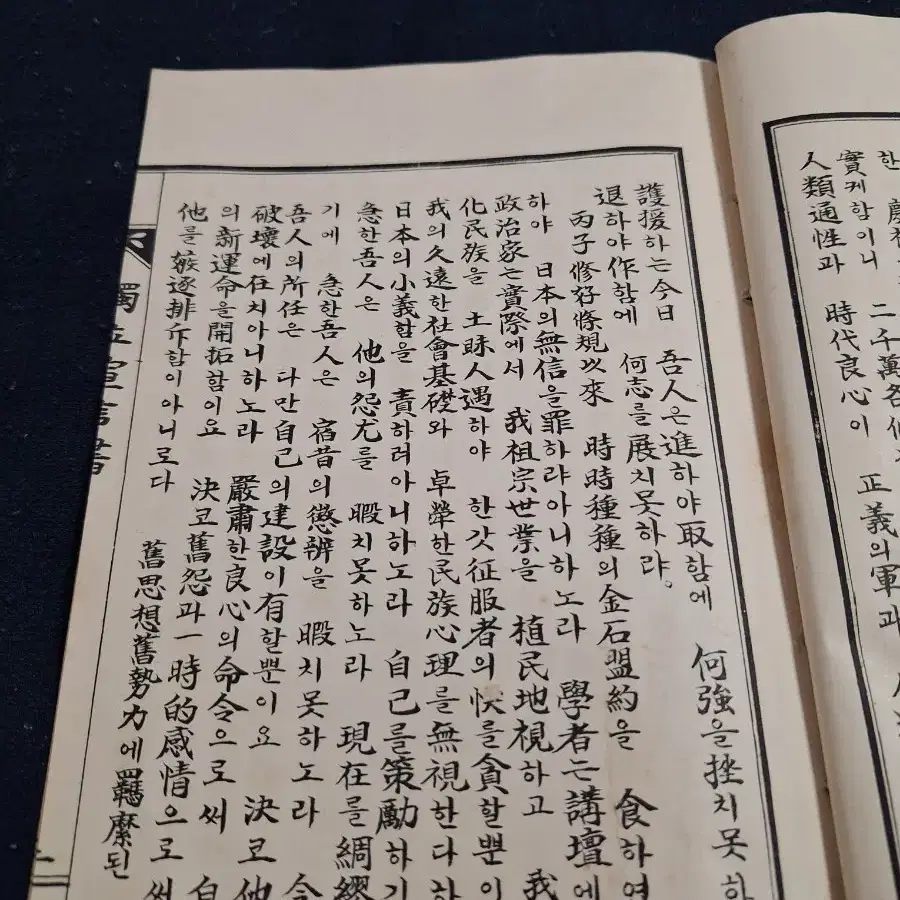 한
實케함이니 二千萬各個
人類通性과 時代良心이 正義의軍과
護援하는今日 吾人은進하야取함에 何強을挫치못하
退하야作함에 何志를展치못하랴。
丙子修好條規以來 時時種種의金石盟約을 食하여
하야 日本의無信을罪하랴아니하노라 學者는講壇에
政治家는實際에서 我祖宗世業을 植民地視하고 我
化民族을 土昧人遇하야 한갓征服者의快를貪할뿐이
我의久遠한社會基礎와 卓犖한民族心理를無視한다하
日本의小義함을 責하려아니하노라 自己를策勵하기
急한吾人은 他의怨尤를 暇치못하노라 現在를綢繆
기에 急한吾人은 宿昔의懲辨을 暇치못하노라 今
吾人의所任은 다만自己의建設이有할뿐이요 決코他
破壞에在치아니하노라 嚴肅한良心의命令으로써 自
의新運命을開拓함이요 決코舊怨과一時的感情으로써
他를嫉逐排斥함이아니로다 舊思想舊勢力에羈縻된
獨立宣言書